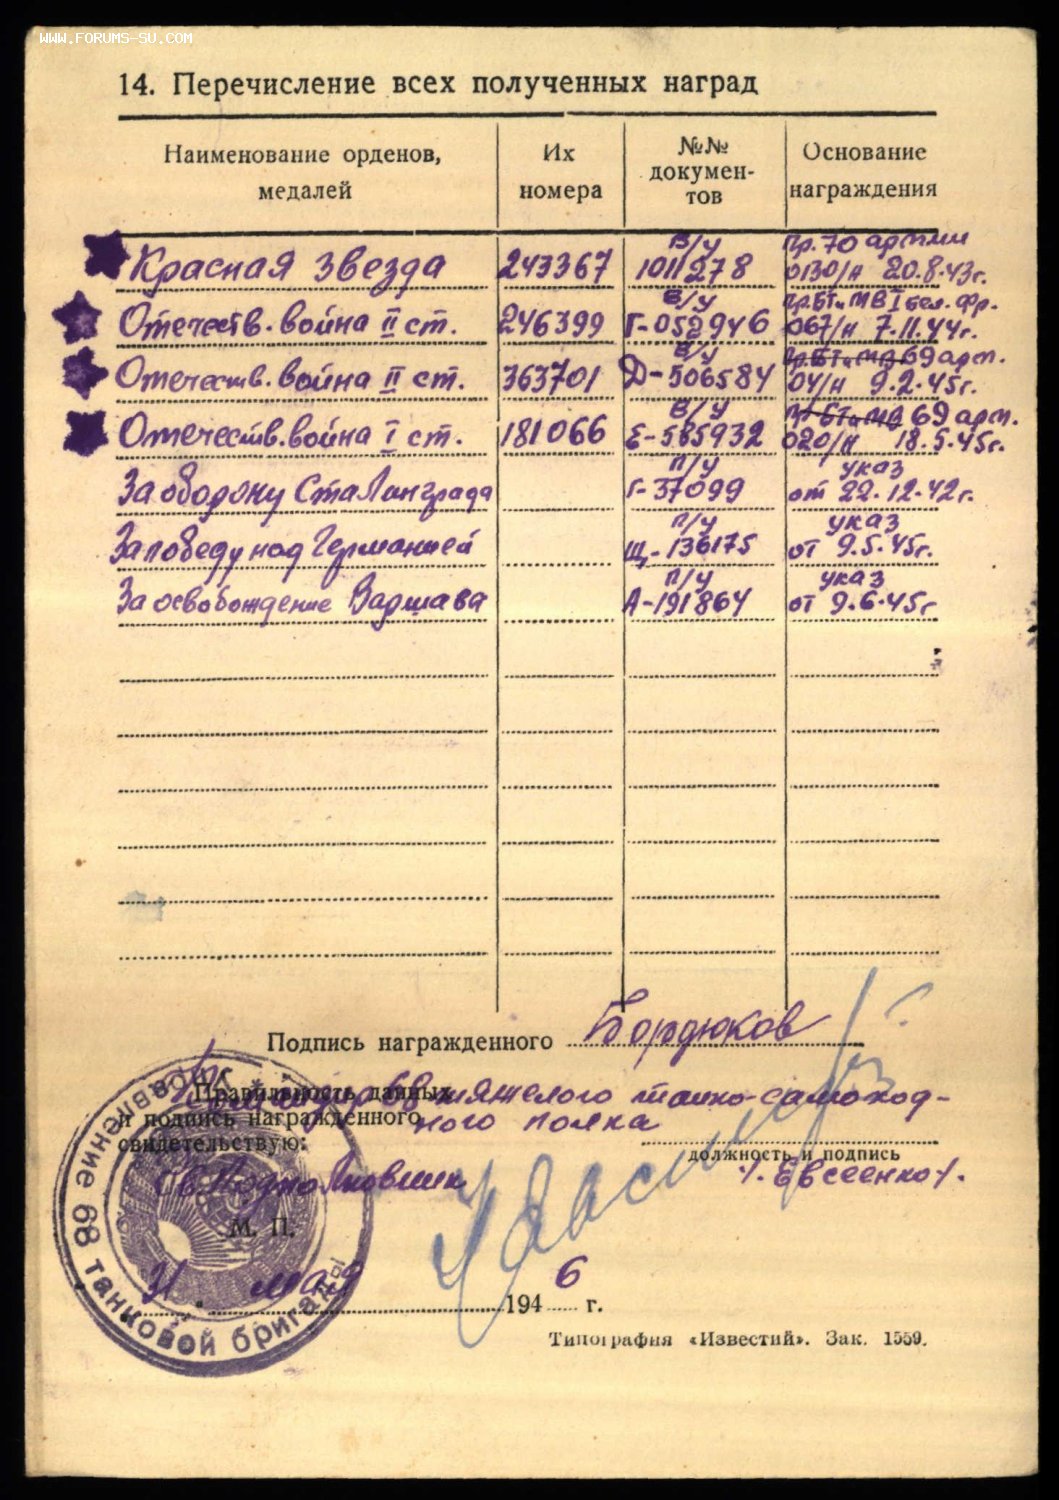 WWW.FORUMS-SU.COM
14. Перечисление всех полученных наград
Наименование орденов, медалей
Их номера
№№ докумен-тов
Основание награждения
Красная звезда 243367 В/У 1011278 Пр. 70 армии 0130/н 20.8.43г.
Отечеств. война II ст. 246399 В/У Г-052946 Пр.БТиМВ I бел. фр. 067/н 7.11.44г.
Отечеств. война II ст. 363701 В/У Д-506584 69 арм. 04/н 9.2.45г.
Отечеств. война I ст. 181066 В/У Е-585932 69 арм. 020/н 18.5.45г.
За оборону Сталинграда П/У Г-37099 указ от 22.12.42г.
За победу над Германией П/У Щ-136175 указ от 9.5.45г.
За освобождение Варшава П/У А-191864 указ от 9.6.45г
Подпись награжденного Бордюков
Правильность данных тяжелого танко-самоход-
и подпись награжденного ного полка
свидетельствую:
должность и подпись
Подполковник /. Евсеенко /.
М. П.
31 мая 1946 г.
управление 68 танковой бригады
Типография «Известий». Зак. 1559.